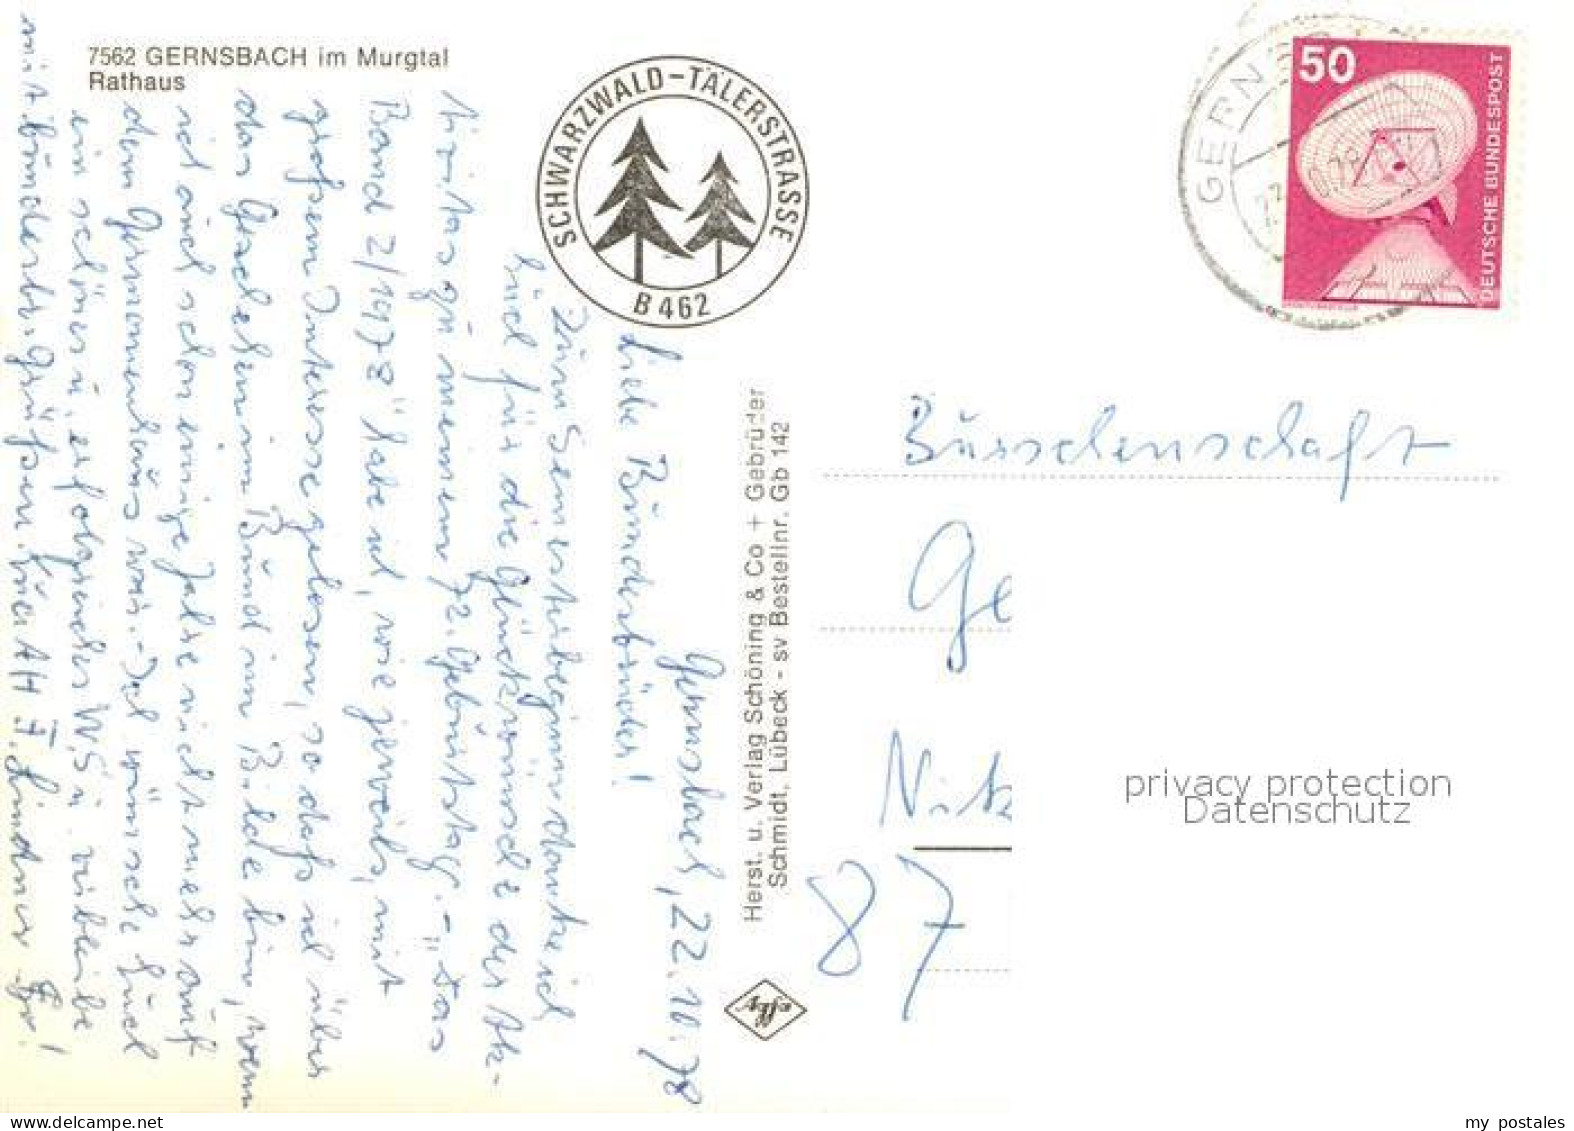 7562 GERNSBACH im Murgtal
Rathaus
SCHWARZWALD-TÄLERSTRASSE
B 462
GERNSB
50
DEUTSCHE BUNDESPOST
Gernsbach, 22.10.78
Liebe Bundesbrüder!
Zum Semesterbeginn danke ich
Euch für die Glückwünsche der Ak-
tivitas zu meinem 72. Geburtstag. - „Das
Band 2/1978" habe ich, wie jeweils, mit
großem Interesse gelesen, so daß ich über
das Geschehen im Bund im Bilde bin, wenn
ich auch schon einige Jahre nicht mehr auf
dem Germanenhaus war. - Ich wünsche Euch
ein schönes u. erfolgreiches WS u. verbleibe
mit bundesbr. Grüßen Euer AH F. Lindner
Herst. u. Verlag Schöning & Co + Gebrüder
Schmidt, Lübeck - sv Bestellnr. Gb 142
Burschenschaft
Ge
87
privacy protection
Datenschutz
my postales